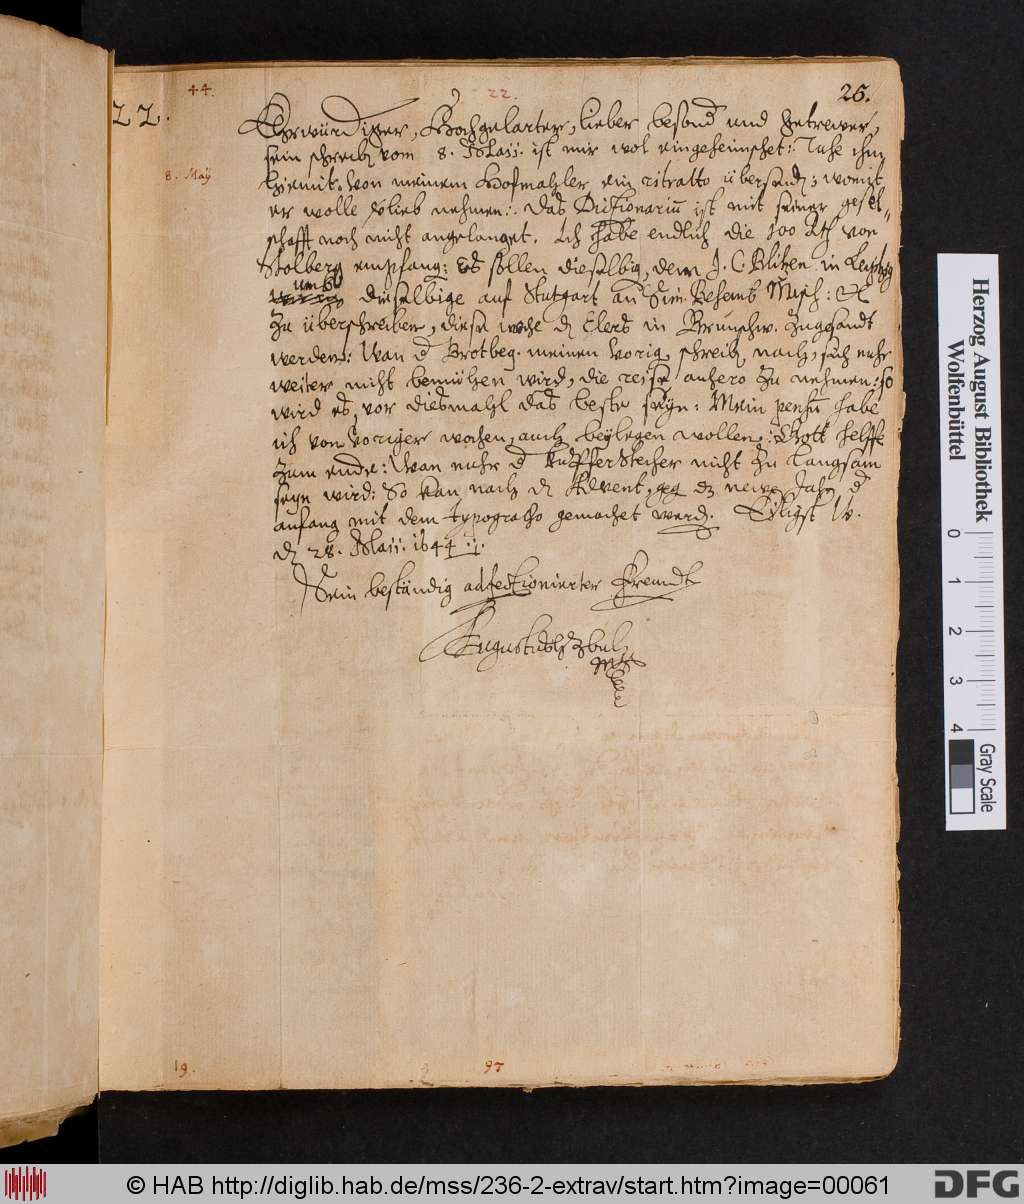 44.
22.
26.
22.
8. Maÿ
Ehrwürdiger, Hochgelarter, lieber besond und getrewer,
sein schreib vom 8. Maij. ist mir wol eingeheimschet: Tuhe ihm
hiemit von meinem Hofmahler ein ritratto übersend; womit
er wolle vlieb nehmen: Das Dictionariū ist mit seiner gesel-
schafft noch nicht angelanget. Ich habe endlich die 100 Rth von
Stolberg empfang: Es sollen dieselbig, dem J. C. Blitzen in Leipzig
umb
dieselbige auf Stutgart an
zu überschreiben, diese woche d Elers in Brunschw. zugesandt
werden: Wan d Brotbeg. meinen vorig schreib nach, sich nuhr
weiter nicht bemühen wird, die reise anhero zu nehmen: so
wird es vor diesmahl das beste seÿn: Mein pensū habe
ich von voriger wochen, auch beÿlegen wollen: Gott helffe
zum ende: Wan nuhr d Kupfferstecher nicht zu langsam
seÿn wird: So kan nach d Advent, geg dz newe Jahr d
anfang mit dem typographo gemachet werd. Eiligst W.
d 28. Maij. 1644
Sein beständig adfectionirter Freundt
Augustus HzBuL
mpp
19.
97
Herzog August Bibliothek
Wolfenbüttel
0 1 2 3 4
Gray Scale
© HAB http://diglib.hab.de/mss/236-2-extrav/start.htm?image=00061
DFG